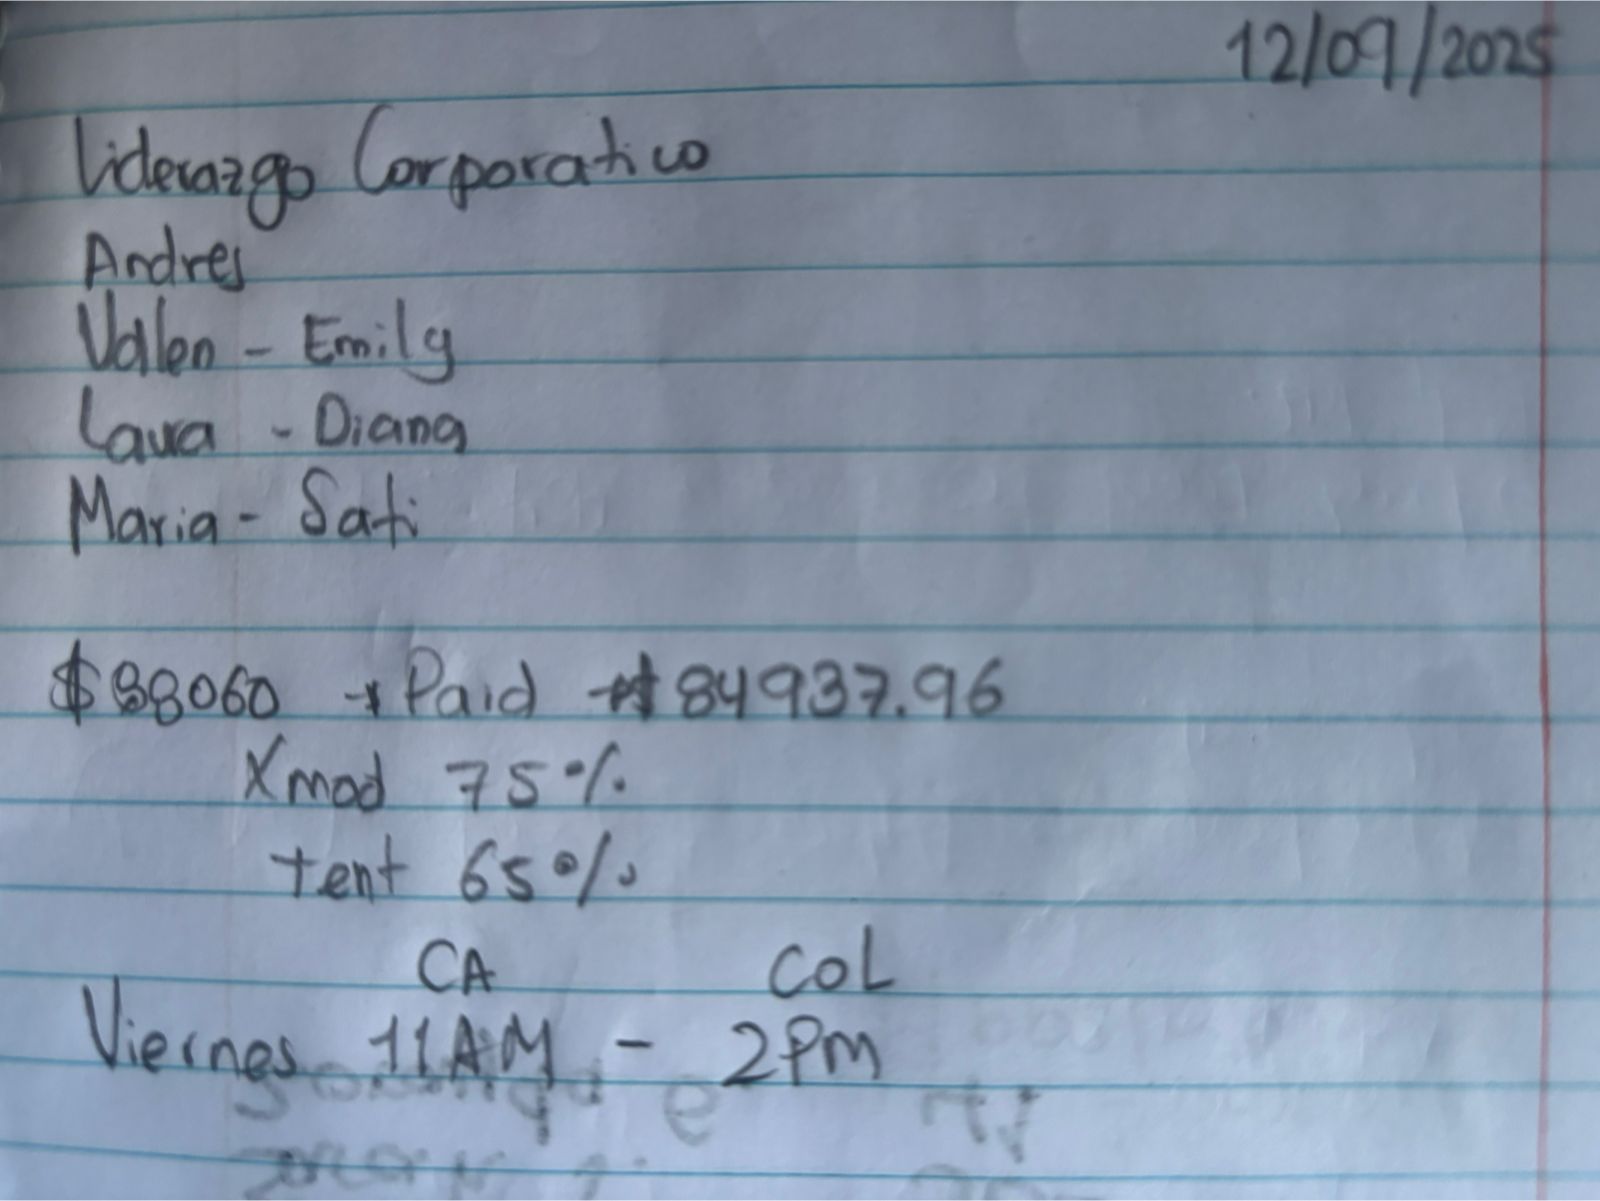 12/09/2025
Liderazgo Corporativo
Andres
Vallen - Emily
Laura - Diana
Maria - Sati
$88060 → Paid → $84937.96
Xmod 75%
tent 65%
CA COL
Viernes 11AM - 2PM